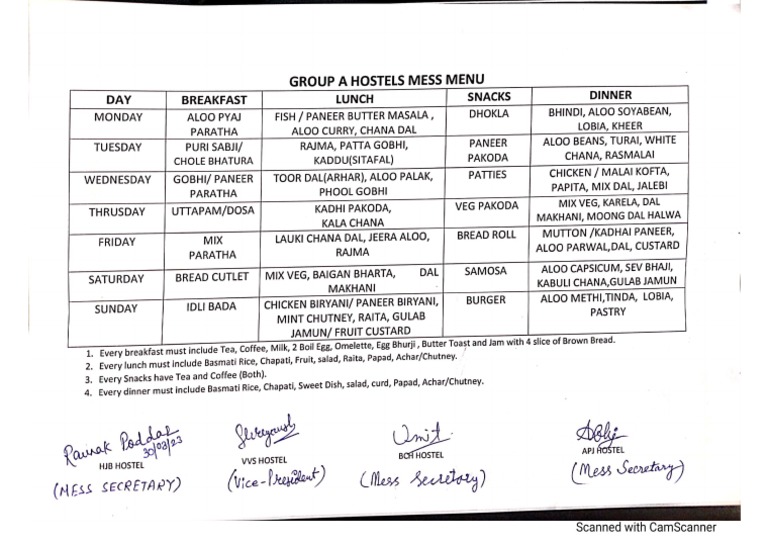 GROUP A HOSTELS MESS MENU
DAY BREAKFAST LUNCH SNACKS DINNER
MONDAY ALOO PYAJ PARATHA FISH / PANEER BUTTER MASALA , ALOO CURRY, CHANA DAL DHOKLA BHINDI, ALOO SOYABEAN, LOBIA, KHEER
TUESDAY PURI SABJI/ CHOLE BHATURA RAJMA, PATTA GOBHI, KADDU(SITAFAL) PANEER PAKODA ALOO BEANS, TURAI, WHITE CHANA, RASMALAI
WEDNESDAY GOBHI/ PANEER PARATHA TOOR DAL(ARHAR), ALOO PALAK, PHOOL GOBHI PATTIES CHICKEN / MALAI KOFTA, PAPITA, MIX DAL, JALEBI
THRUSDAY UTTAPAM/DOSA KADHI PAKODA, KALA CHANA VEG PAKODA MIX VEG, KARELA, DAL MAKHANI, MOONG DAL HALWA
FRIDAY MIX PARATHA LAUKI CHANA DAL, JEERA ALOO, RAJMA BREAD ROLL MUTTON /KADHAI PANEER, ALOO PARWAL,DAL, CUSTARD
SATURDAY BREAD CUTLET MIX VEG, BAIGAN BHARTA, DAL MAKHANI SAMOSA ALOO CAPSICUM, SEV BHAJI, KABULI CHANA,GULAB JAMUN
SUNDAY IDLI BADA CHICKEN BIRYANI/ PANEER BIRYANI, MINT CHUTNEY, RAITA, GULAB JAMUN/ FRUIT CUSTARD BURGER ALOO METHI,TINDA, LOBIA, PASTRY
1. Every breakfast must include Tea, Coffee, Milk, 2 Boil Egg, Omelette, Egg Bhurji , Butter Toast and Jam with 4 slice of Brown Bread.
2. Every lunch must include Basmati Rice, Chapati, Fruit, salad, Raita, Papad, Achar/Chutney.
3. Every Snacks have Tea and Coffee (Both).
4. Every dinner must include Basmati Rice, Chapati, Sweet Dish, salad, curd, Papad, Achar/Chutney.
Raunak Poddar
30/03/23
HJB HOSTEL VVS HOSTEL BCH HOSTEL APJ HOSTEL
(MESS SECRETARY) (Vice-President) (Mess Secretary) (Mess Secretary)
Scanned with CamScanner